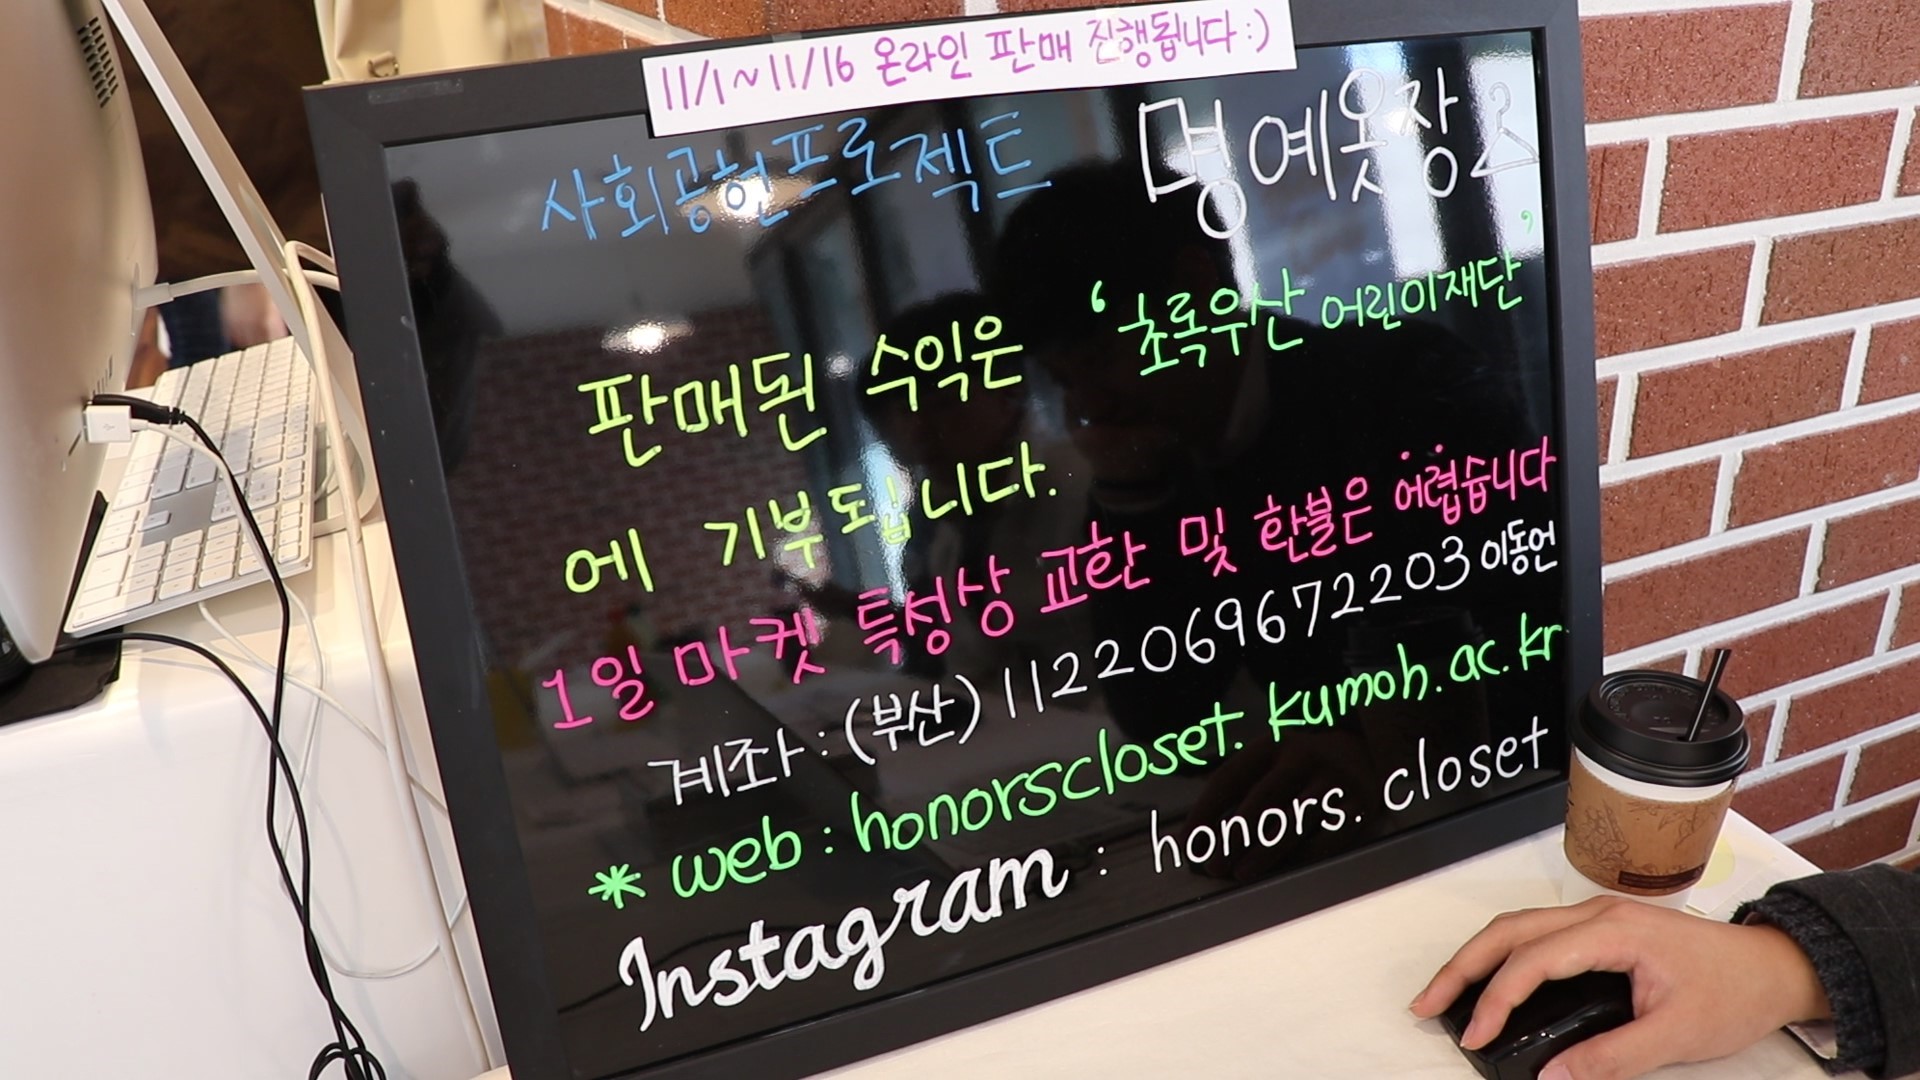 11/1~11/16 온라인 판매 진행됩니다:)
사회공헌프로젝트 명예옷장
판매된 수익은 '초록우산 어린이재단'
에 기부됩니다.
1일마켓 특성상 교환 및 환불은 어렵습니다
계좌:(부산) 1122069672203 이동언
* web : honorscloset.kumoh.ac.kr
Instagram : honors.closet